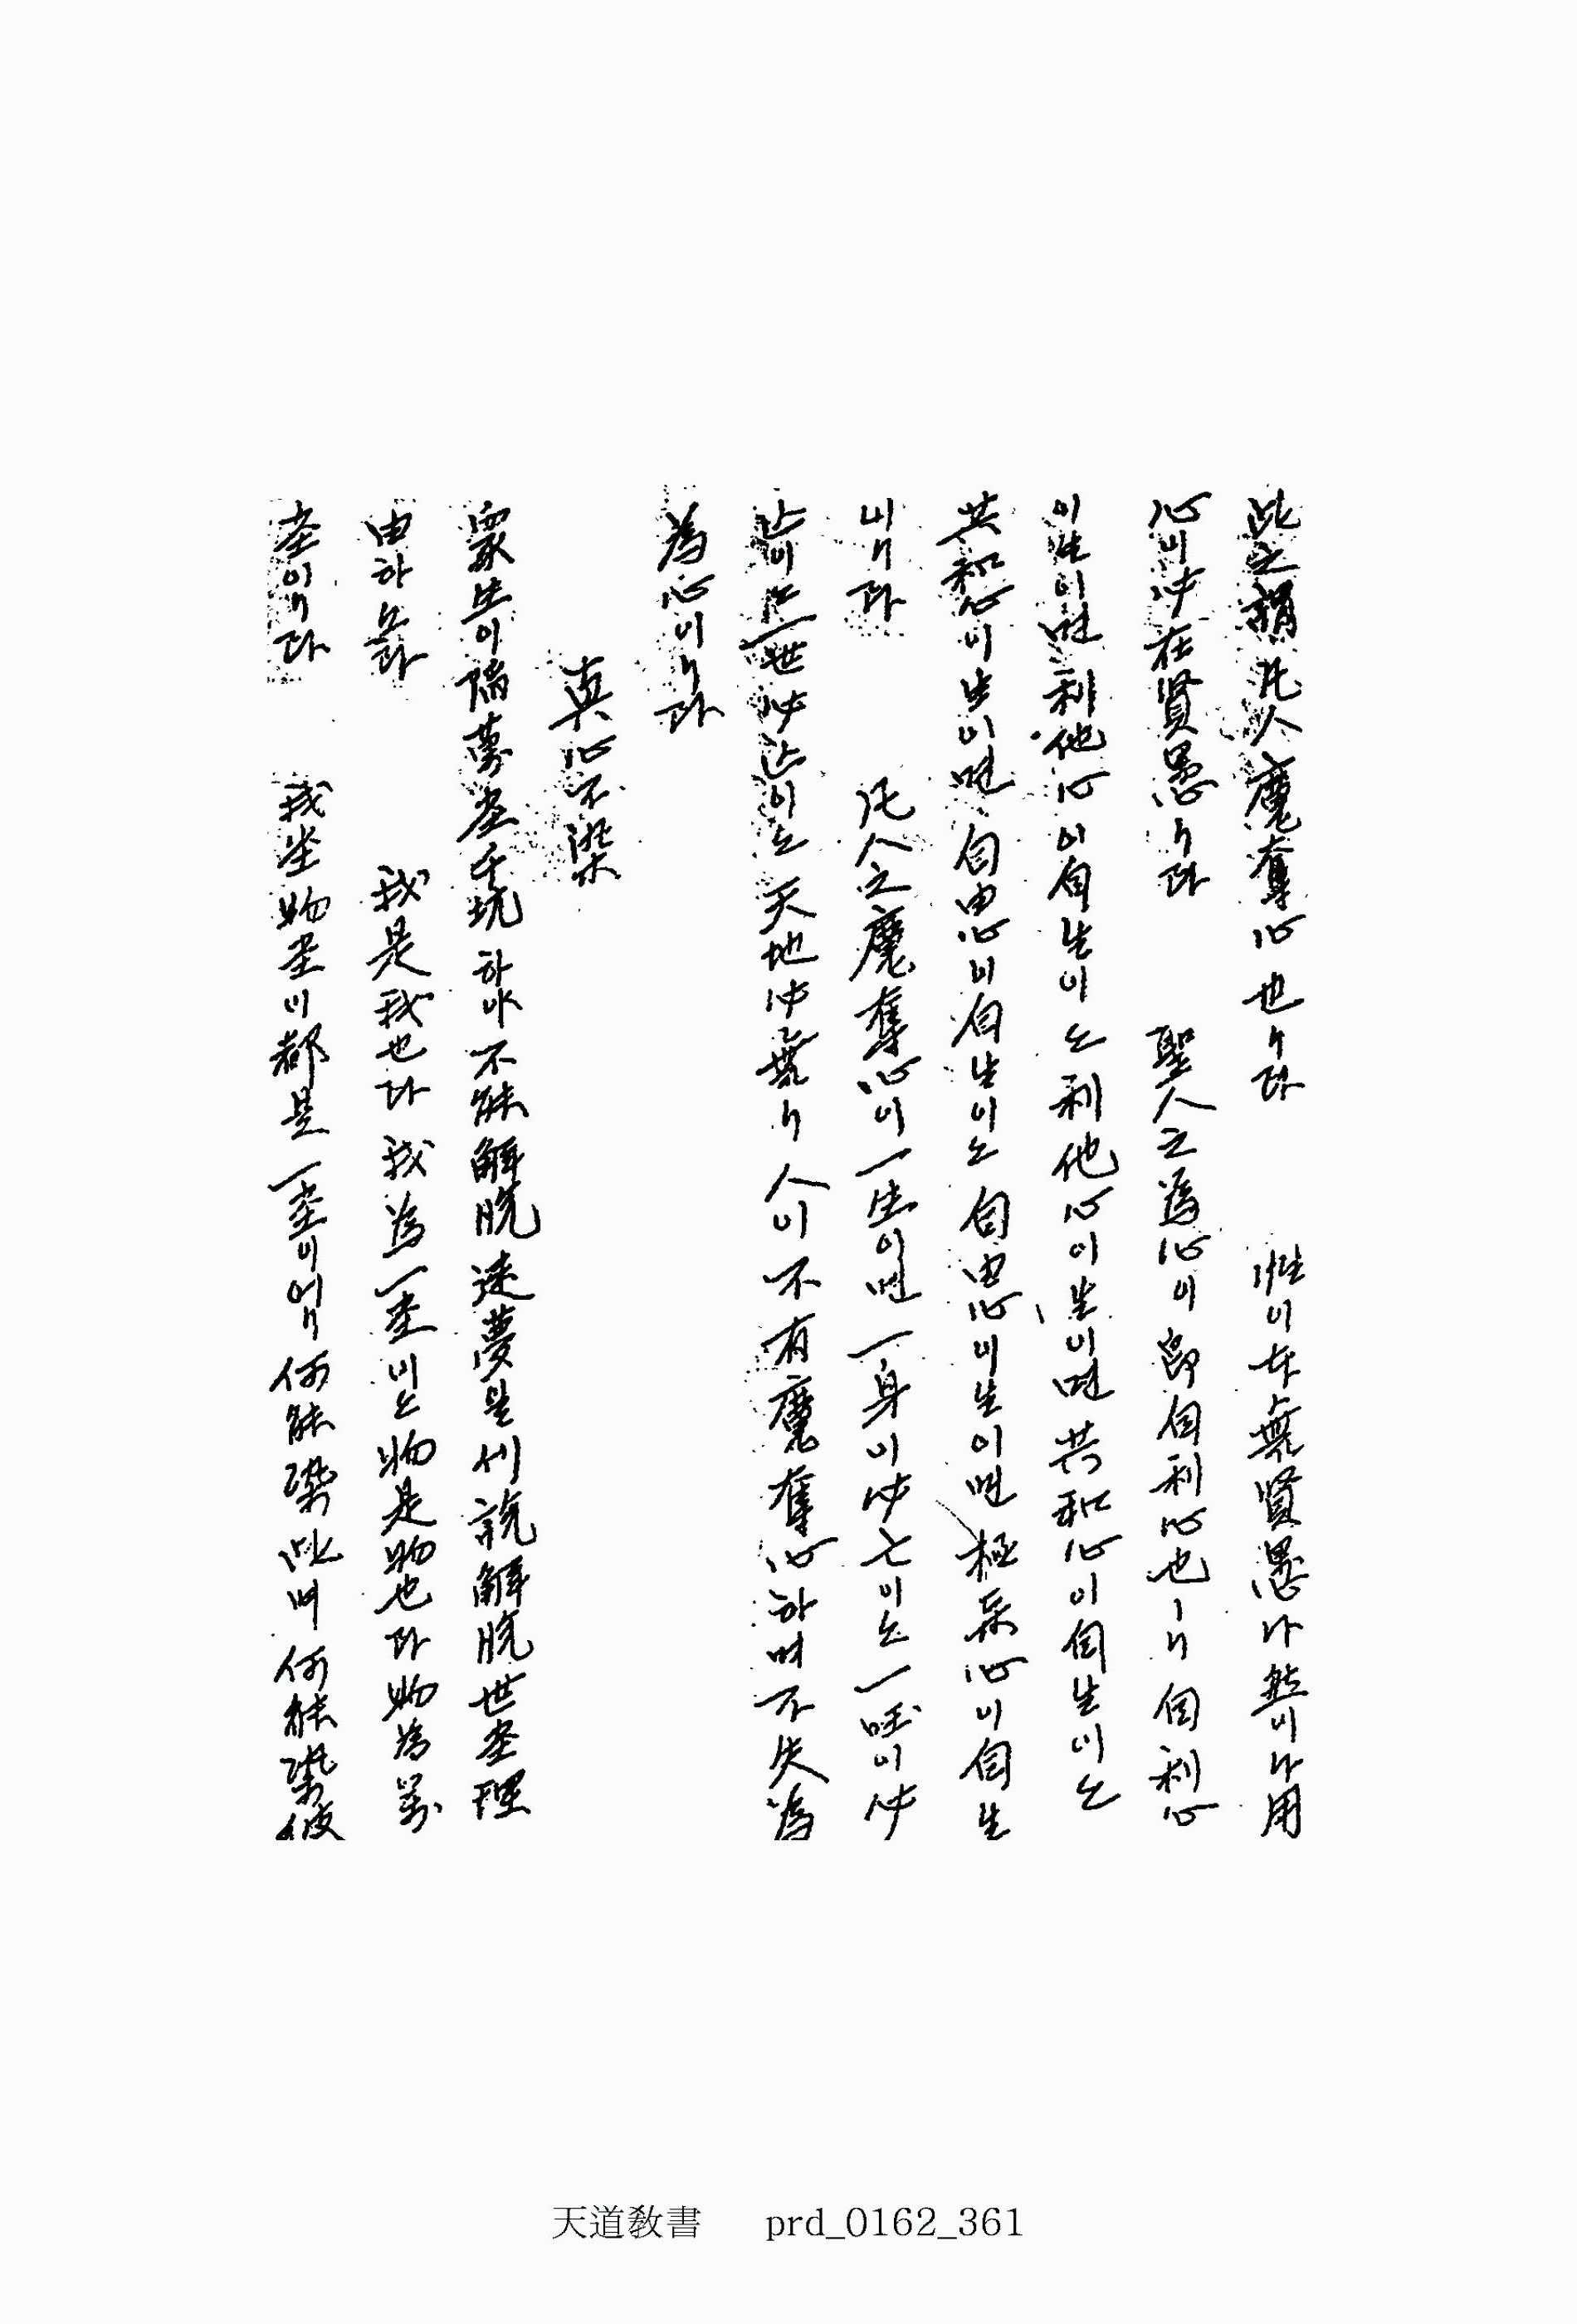 此之謂凡人魔奪心也니라 性이本無賢愚나然이나用
心이必在賢愚니라 聖人之爲心이卽自利心也ㅣ니自利心
이生이면利他心이自生이오利他心이生이면共和心이自生이오
共和心이生이면自由心이自生이오自由心이生이면極樂心이自生
이니라 凡人之魔奪心이一生이면一身이必亡이오一國이必
亡이오一世必亡이오天地必無니人이不有魔奪心하며不失爲
爲心이니라
眞心不染
衆生이陷夢塵千坑하야不能解脫迷夢을細說解脫世塵理
由하노라 我是我也라我爲一塵이오物是物也라物爲萬
塵이니라 我塵物塵이都是一塵이어니何能染此며何能染彼
天道敎書 prd_0162_361